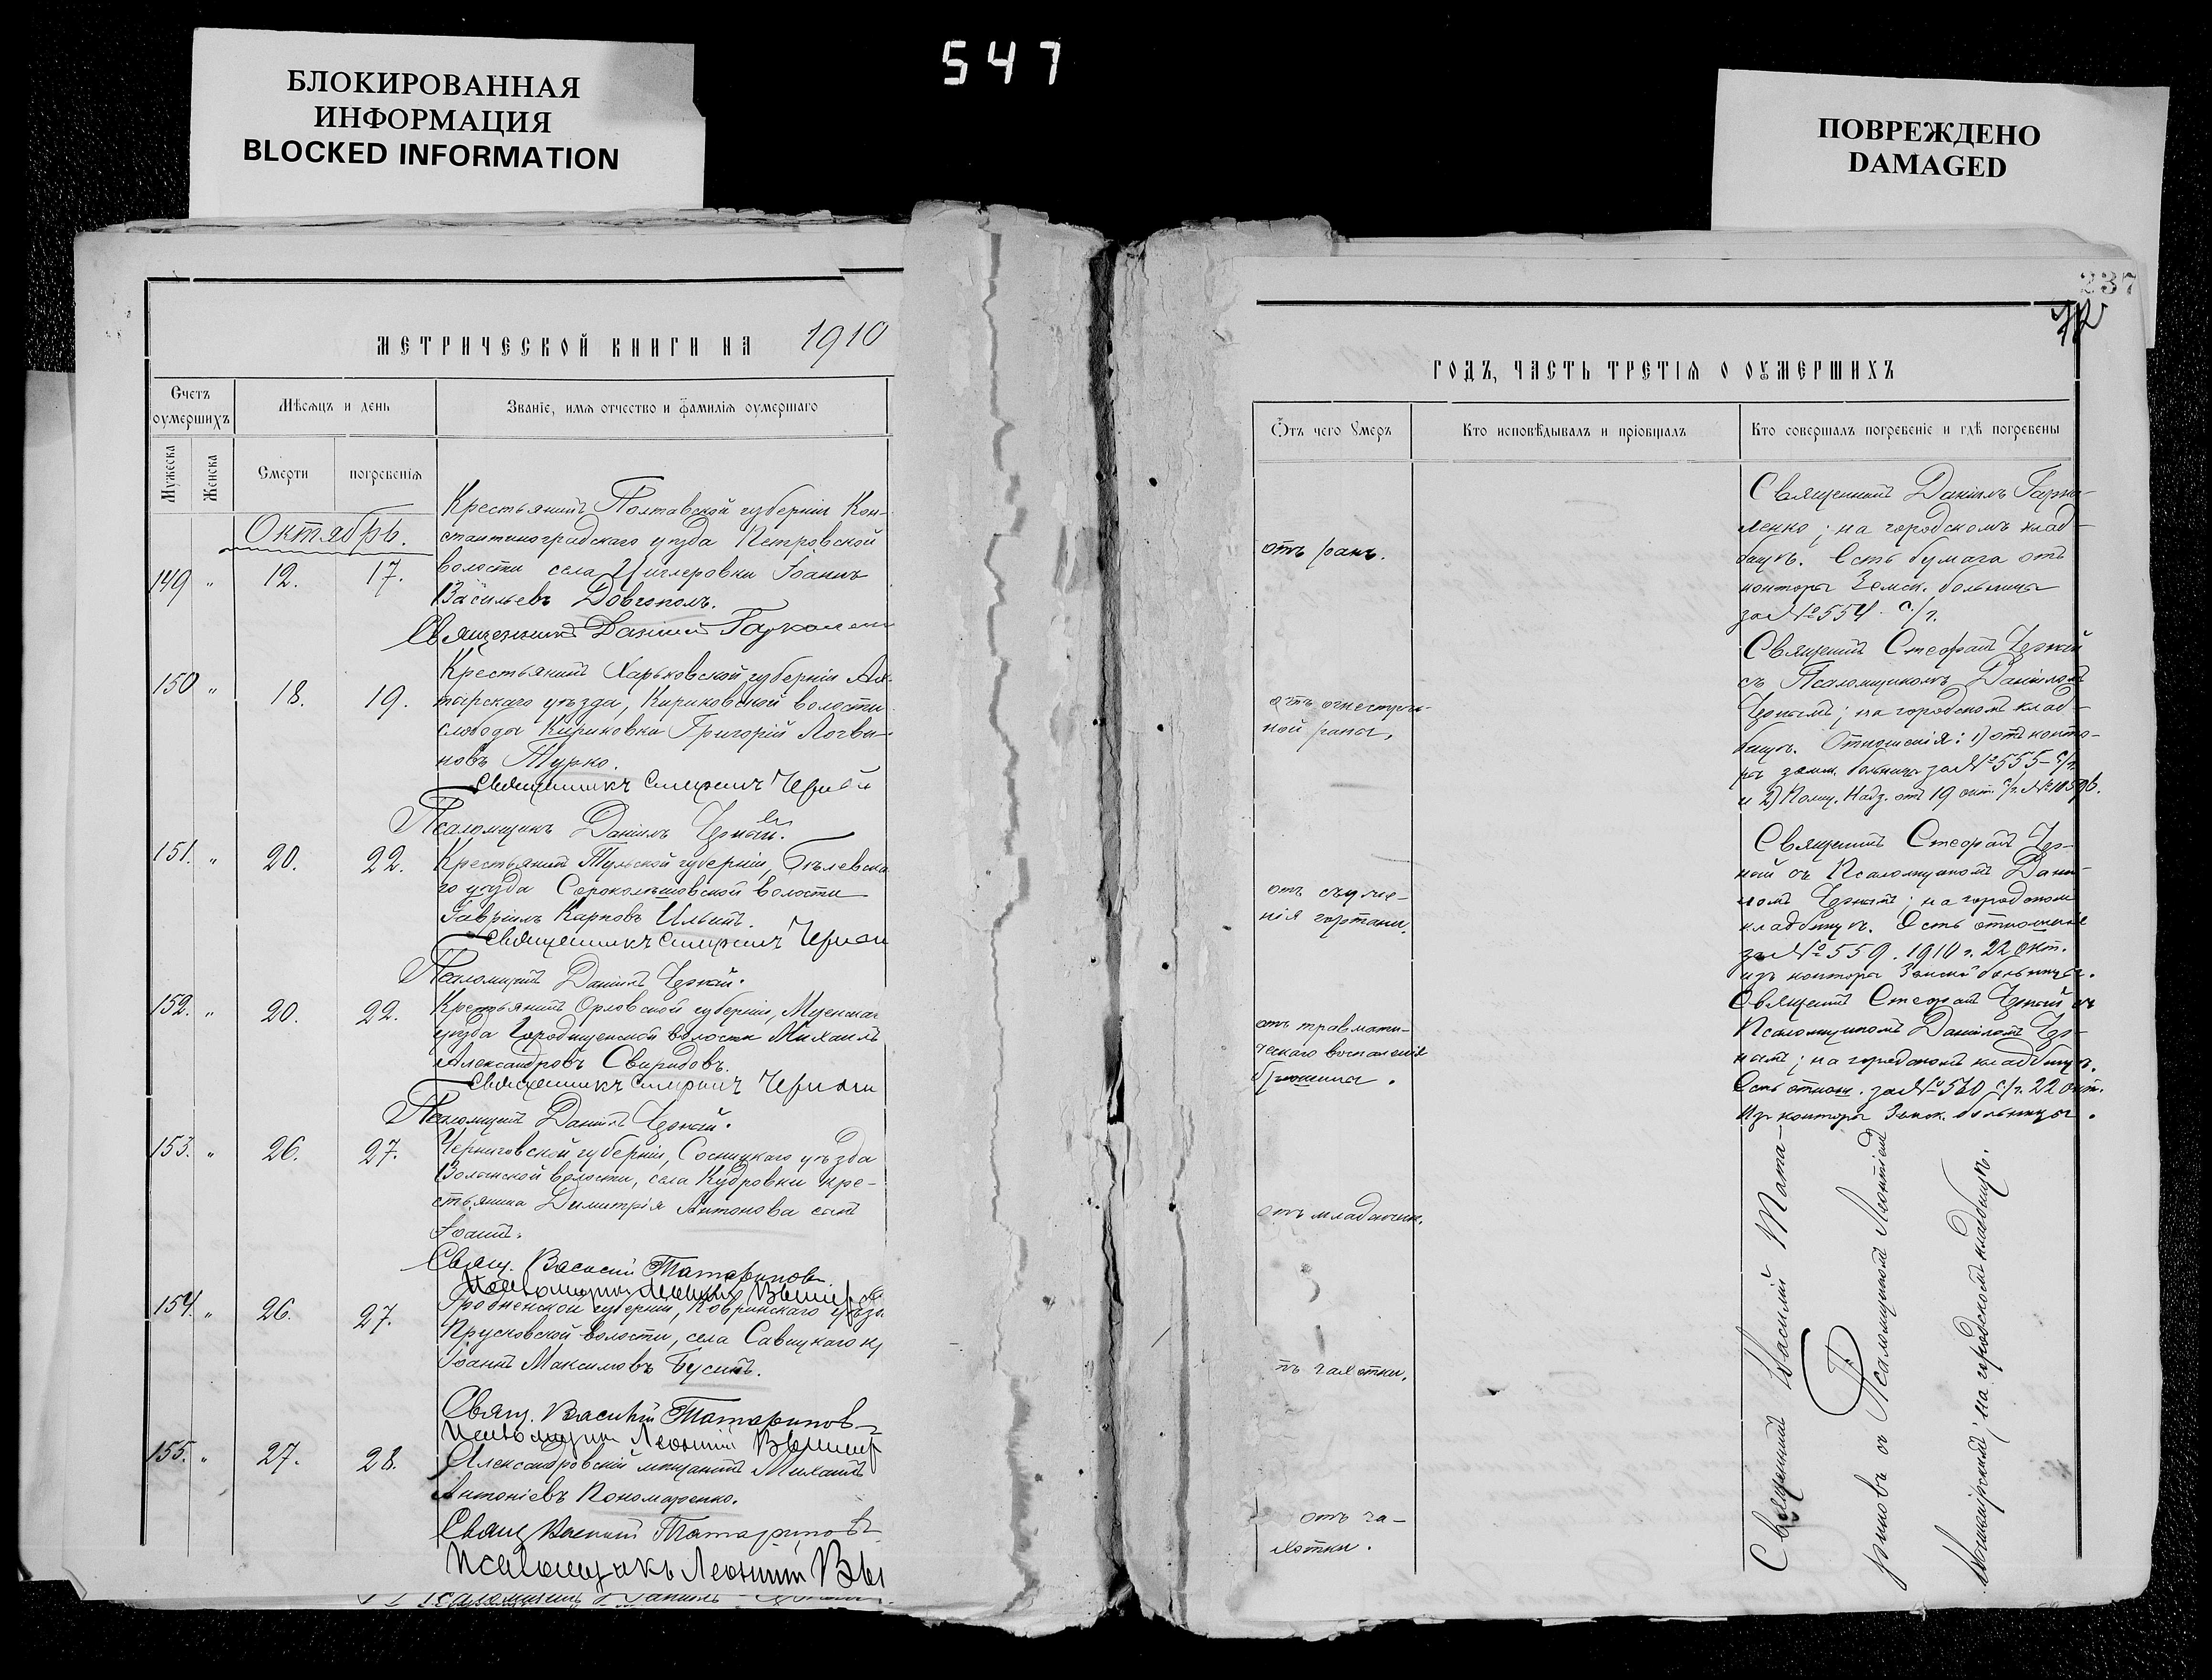 547
БЛОКИРОВАННАЯ
ИНФОРМАЦИЯ
BLOCKED INFORMATION
ПОВРЕЖДЕНО
DAMAGED
МЕТРИЧЕСКОЙ КНИГИ НА 1910
Счетъ оумершихъ
Мужеска
Женска
Мѣсяцъ и день
Смерти
погребенія
Званіе, имя отчество и фамилія оумершаго
Октябрь.
149 " 12. 17.
Крестьянинъ Полтавской губерніи Кон-
стантиноградскаго уѣзда Петровской
волости села Циглеровки Іоаннъ
Васильевъ Довгополъ.
Священникъ Даніилъ
150 " 18. 19.
Крестьянинъ Харьковской губерніи Ах-
тырскаго уѣзда, Кириковской волости
слободы Кириковки Григорій Логви-
новъ Турко.
Священникъ Стефанъ Черный
Псаломщикъ Даніилъ Черный.
151. " 20. 22.
Крестьянинъ Тульской губерніи, Бѣлевска
го уѣзда волости
Гавріилъ Карповъ Ильинъ.
Священникъ Стефанъ Черный
Псаломщикъ Даніилъ Черный.
152. " 20. 22.
Крестьянинъ Орловской губерніи, Мценскаг
уѣзда Городищенской волости Михаилъ
Александровъ Свиридовъ.
Священникъ Стефанъ Черный
Псаломщикъ Даніилъ Черный.
153. " 26. 27.
Черниговской губерніи, Сосницкаго уѣзда
волости, села Кудровки кре-
стьянина Димитрія Антонова сынъ
Іоаннъ.
Свящ. Василій Татариновъ
Псаломщикъ Леонтій
154. " 26. 27.
Гродненской губерніи, Кобринскаго уѣзд
Прусковской волости, села Савицкаго кр
Іоаннъ Максимовъ Бусинъ.
Свящ. Василій Татариновъ
Псаломщикъ Леонтій
155. " 27. 28.
Александровскій мѣщанинъ Михаилъ
Антоніевъ Пономаренко.
Свящ Василий Татариновъ
Псаломщикъ Леонтій Вы
237
ГОДЪ, ЧАСТЬ ТРЕТІЯ О ОУМЕРШИХЪ
Отъ чего Умеръ
Кто исповѣдывалъ и пріобщалъ
Кто совершалъ погребеніе и гдѣ погребены
отъ ранъ.
Священникъ Даніилъ Гарко-
ленко; на городскомъ клад-
бищѣ. Есть бумага отъ
конторы Земск. больницы
за № 554 с/г.
отъ огнестрѣль-
ной раны.
Священникъ Стефанъ Черный
съ Псаломщикомъ Даніиломъ
Чернымъ; на городскомъ клад-
бищѣ. Отношенія: 1) отъ конто-
ры земск. больницы за № 555 с/г.
и 2) Полиц. Надз. отъ 19 окт. с/г. №
отъ съуже-
нія гортани.
Священникъ Стефанъ Чер-
ный съ Псаломщикомъ Дани-
ломъ Чернымъ; на городском
кладбищѣ. Есть отношеніе
за № 559. 1910 г. 22 Окт.
изъ конторы Земской больницы.
отъ травмати-
ческаго воспаленія
брюшины.
Священникъ Стефанъ Черный съ
Псаломщикомъ Даніиломъ Чер-
нымъ; на городскомъ кладбищѣ.
Есть отнош. за № 560 с/г. 22 Окт.
Из конторы Земск. больницы.
отъ младенч.
тъ чахотки.
отъ ча-
хотки.
Священникъ Василій Тата-
риновъ съ Псаломщикомъ Леонтіемъ
на городскомъ кладбищѣ.